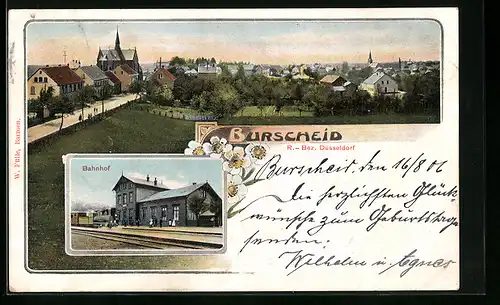 W. Fülle, Barmen.
BURSCHEID
R.-Bez. Düsseldorf
Bahnhof
Burscheid, den 16/8 06
Die herzlichsten Glück-
wünsche zum Geburtstage
senden.
Wilhelm u. Agnes